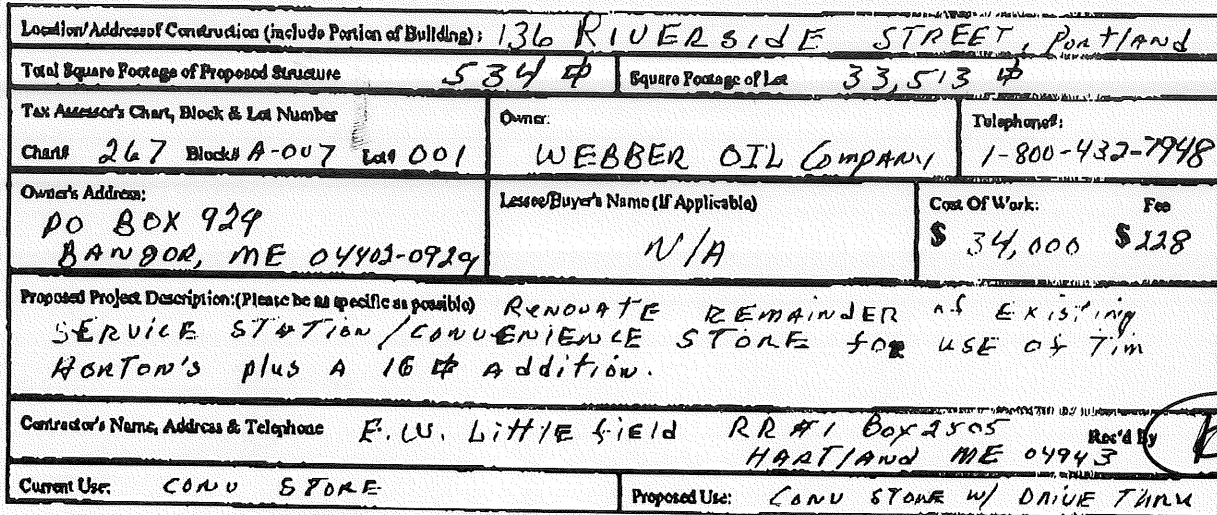 Location/Address of Construction (include Portion of Building): 136 RIVERSIDE STREET, PORTLAND
Total Square Footage of Proposed Structure 534 ⏍ Square Footage of Lot 33,513 ⏍
Tax Assessor's Chart, Block & Lot Number Owner: Telephone#:
Chart# 267 Block# A-007 Lot# 001 WEBBER OIL COMPANY 1-800-432-7948
Owner's Address: Lessee/Buyer's Name (If Applicable) Cost Of Work: Fee
PO BOX 929 N/A $ 34,000 $228
BANGOR, ME 04402-0929
Proposed Project Description:(Please be as specific as possible) RENOVATE REMAINDER of Existing
SERVICE STATION/CONVENIENCE STORE for USE of Tim
HORTON'S plus A 16 ⏍ Addition.
Contractor's Name, Address & Telephone E.W. Littlefield RR #1 Box 2505 Rec'd By
HARTLAND ME 04943
Current Use: CONV STORE Proposed Use: CONV STORE W/ DRIVE THRU